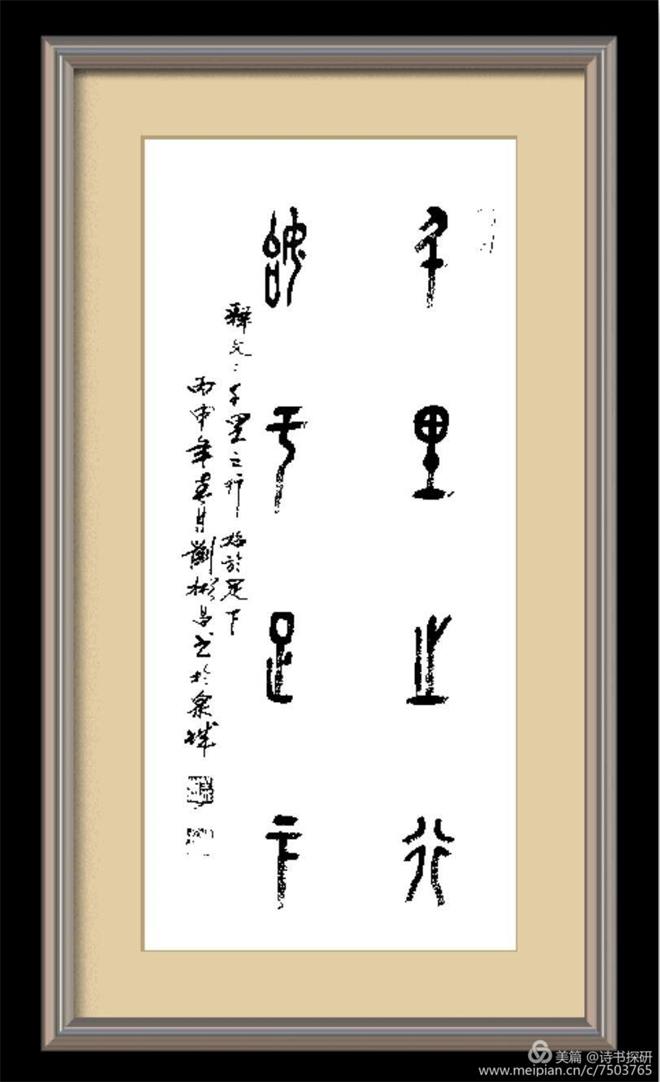 千里之行
始于足下
释文：千里之行，始於足下
丙申年春月刘彬昌书於泉城
美篇 @诗书探研
www.meipian.cn/c/7503765